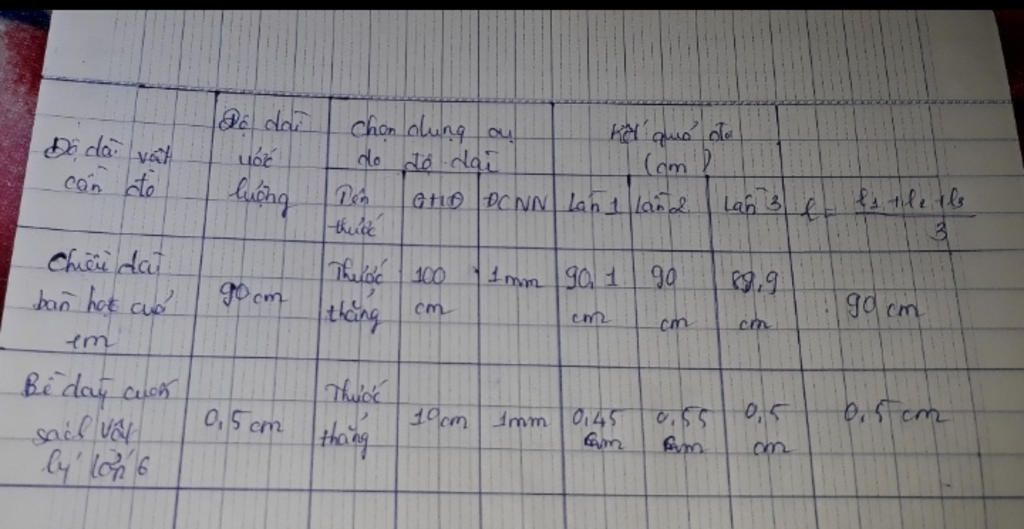 Độ dài vật
cần đo
Độ dài
ước
lượng
Chọn dụng cụ
đo độ dài
Tên
thước
GHĐ
ĐCNN
Kết quả đo
(cm)
Lần 1
Lần 2
Lần 3
l = (l1 + l2 + l3)/3
Chiều dài
bàn học của
em
90 cm
Thước
thẳng
100
cm
1mm
90,1
cm
90
cm
89,9
cm
90 cm
Bề dày cuốn
sách vật
lý lớp 6
0,5 cm
Thước
thẳng
10cm
1mm
0,45
cm
0,55
cm
0,5
cm
0,5 cm